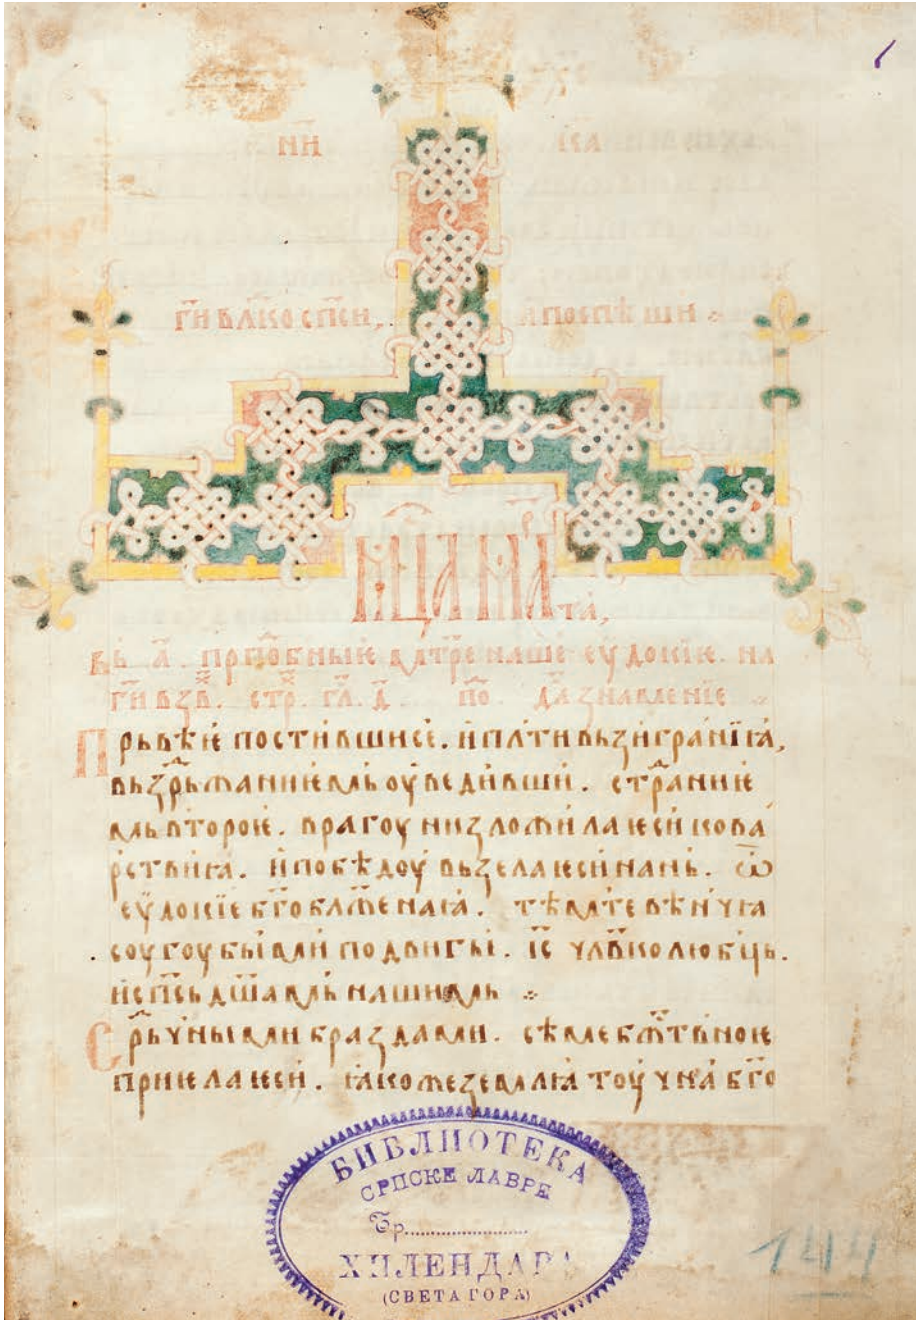 ги влⷣко спⷭси, и поспѣши ⁘
мⷭца мар та,
вь а҃. прпⷣобныѥ мтре наше еѵдокіѥ. на
ги взв. стр. гл. д҃ по. да знамениѥ ⁘
Прьвѣѥ постившисе. и пльти вьзиграніꙗ,
вьзⷣрьжаниѥмь оувѣдивши. страⷣниѥ
мь второѥ. врагоу низложила ѥси кова
рствиꙗ. и побѣдоу вьзела ѥси нань. ѿ
еѵдокіѥ бг҃облⷤенаꙗ. тѣмже вѣнчꙗ
соугоубыими подвигы. іс҃ чл҃вколюбць.
и спⷭсь дш҃амь нашимь ⁘
Срⷣьчными браздами. сѣме бжⷭтвноѥ
приѥла ѥси. ꙗкоже землꙗ тоучнаꙗ бг҃о
БИБЛИОТЕКА
СРПСКЕ ЛАВРЕ
Бр.
ХИЛЕНДАРА
(СВЕТА ГОРА)
144